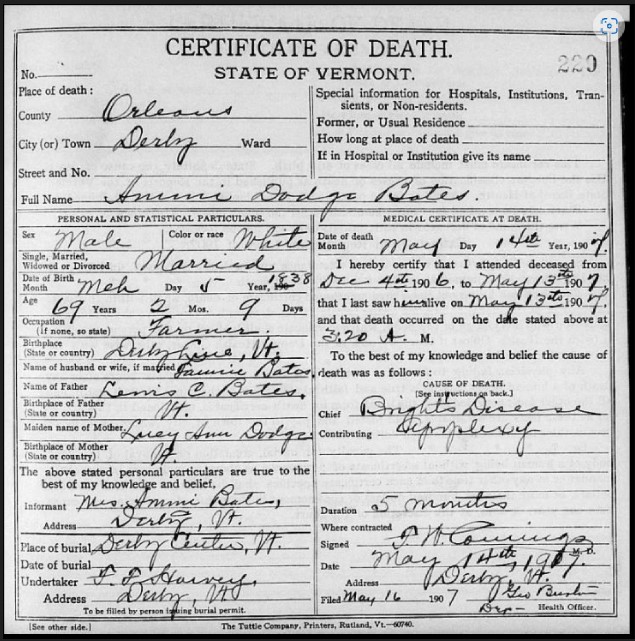 CERTIFICATE OF DEATH.
220
No.
STATE OF VERMONT.
Place of death :
County Orleans
City (or) Town Derby Ward
Street and No.
Full Name Ammi Dodge Bates.
Special information for Hospitals, Institutions, Tran-
sients, or Non-residents.
Former, or Usual Residence
How long at place of death
If in Hospital or Institution give its name
PERSONAL AND STATISTICAL PARTICULARS.
Sex Male Color or race White
Single, Married,
Widowed or Divorced Married
Date of Birth
Month Mch Day 5 Year, 1838
Age 69 Years 2 Mos. 9 Days
Occupation
(if none, so state) Farmer.
Birthplace
(State or country) Derby Line, Vt.
Name of husband or wife, if married Fannie Bates.
Name of Father Lewis C. Bates.
Birthplace of Father
(State or country) Vt.
Maiden name of Mother. Lucy Ann Dodge
Birthplace of Mother
(State or country) Vt.
The above stated personal particulars are true to the
best of my knowledge and belief.
Informant Mrs. Ammi Bates,
Address Derby, Vt.
Place of burial Derby Center, Vt.
Date of burial
Undertaker Harvey,
Address Derby, Vt
To be filled by person issuing burial permit.
MEDICAL CERTIFICATE AT DEATH.
Date of death
Month May Day 14th Year, 1907.
I hereby certify that I attended deceased from
Dec 4th 1906, to May 13th 1907,
that I last saw him alive on May 13th 1907.
and that death occurred on the date stated above at
3:20 A. M.
To the best of my knowledge and belief the cause of
death was as follows :
CAUSE OF DEATH.
[See instructions on back.]
Chief Brights Disease
Contributing Apoplexy
Duration 5 months
Where contracted
Signed M.D.
Date May 14th, 1907.
Address Derby, Vt.
Filed May 16 1907 Geo
Health Officer.
[See other side.]
The Tuttle Company, Printers, Rutland, Vt.—60740.